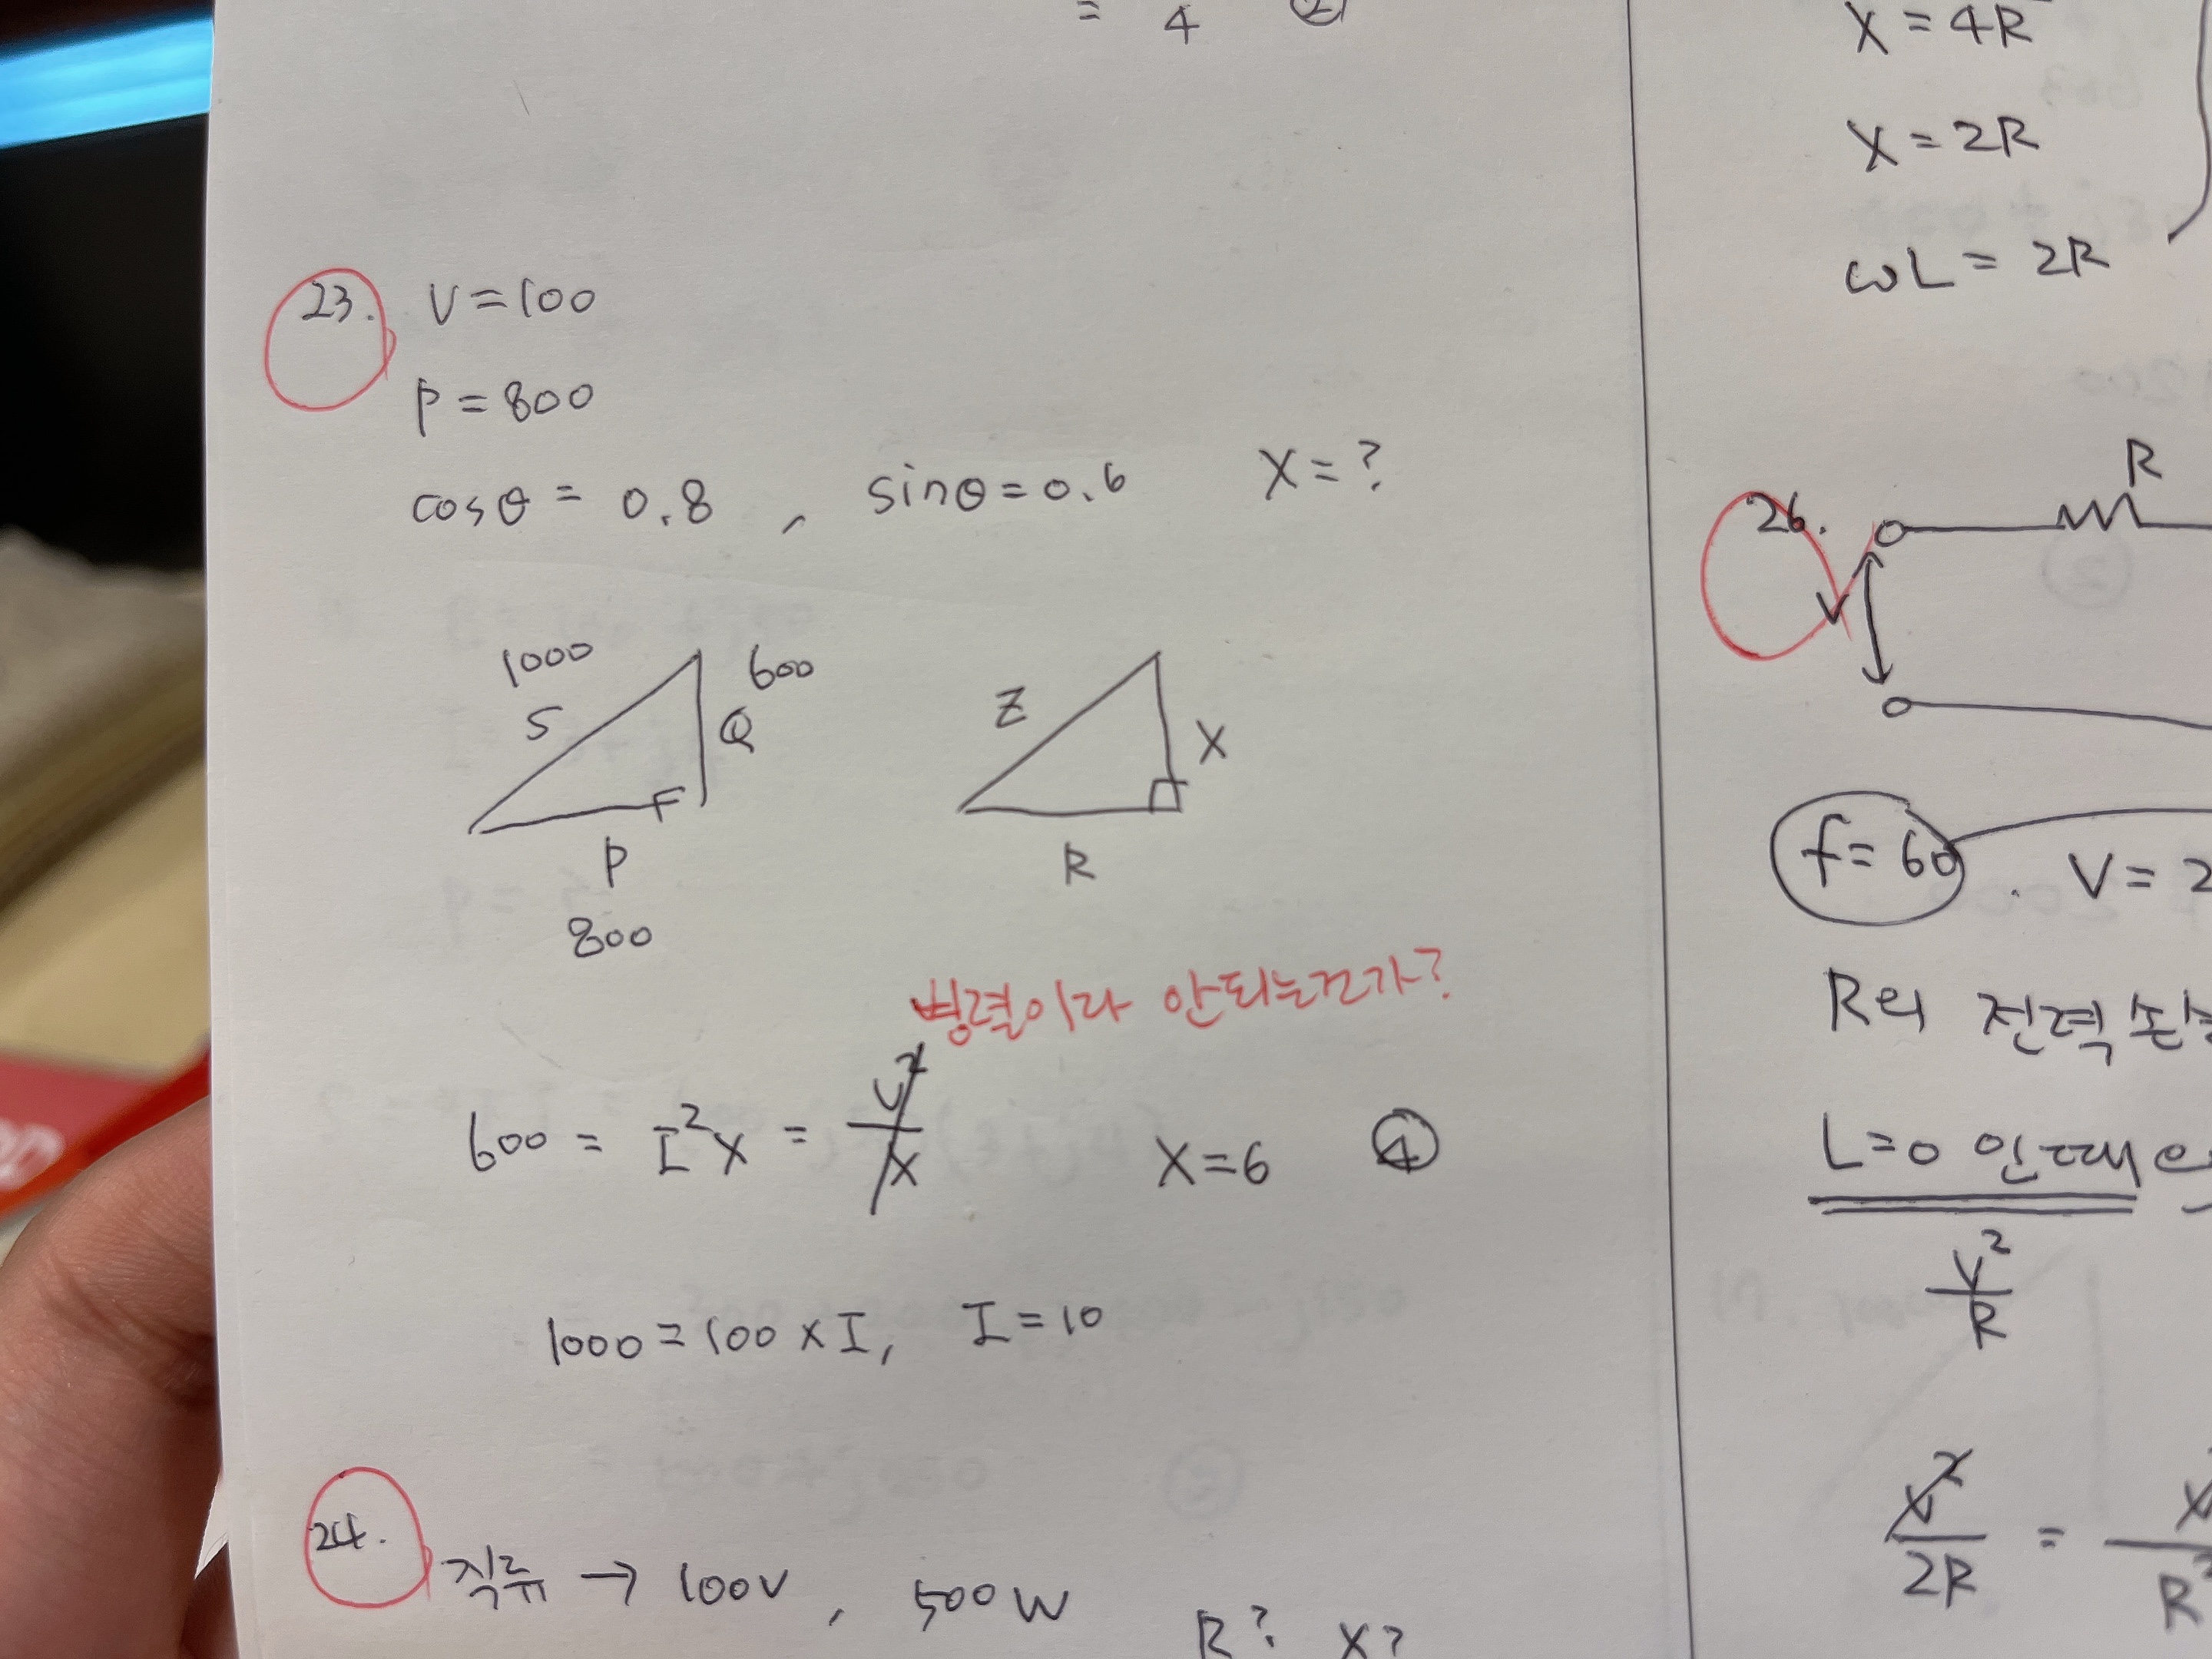 = 4 ②
23. V=100
P=800
cosθ = 0.8 , sinθ=0.6 X=?
1000
S
600
Q
P
800
Z
X
R
병렬이라 안되는건가?
600 = I²X = V²/X X=6 ④
1000=100×I, I=10
24. 직류 → 100V, 500W R? X?
X=4R
X=2R
ωL= 2R
26.
R
V
f=60 . V=2
R의 전력
L=0 인때
V²/R
V²/2R =
R²